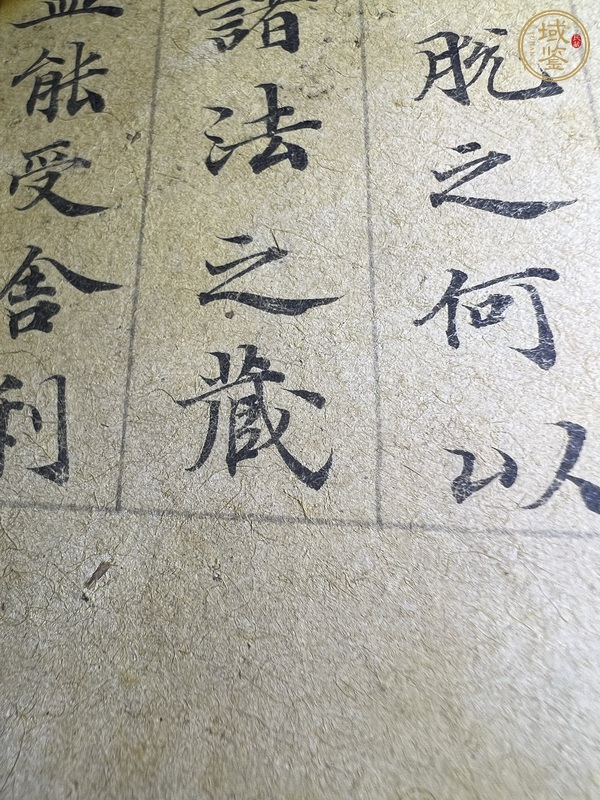 脱之何以
諸法之藏
能受舍利
域鉴